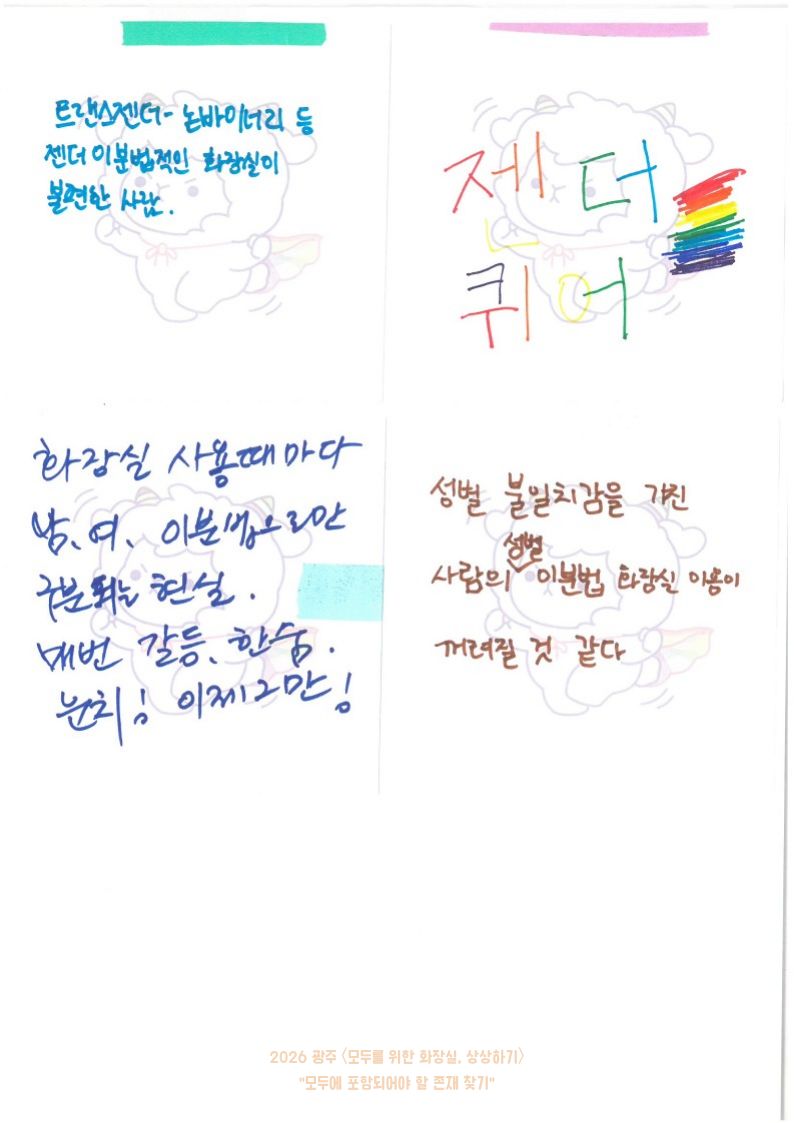 트랜스젠더- 논바이너리 등
젠더 이분법적인 화장실이
불편한 사람.
젠더
퀴어
화장실 사용때마다
남, 여, 이분법으로만
구분되는 현실.
매번 갈등, 한숨.
눈치! 이제그만!
성별 불일치감을 가진
사람의 성별 이분법 화장실 이용이
꺼려질 것 같다
2026 광주 <모두를 위한 화장실, 상상하기>
"모두에 포함되어야 할 존재 찾기"